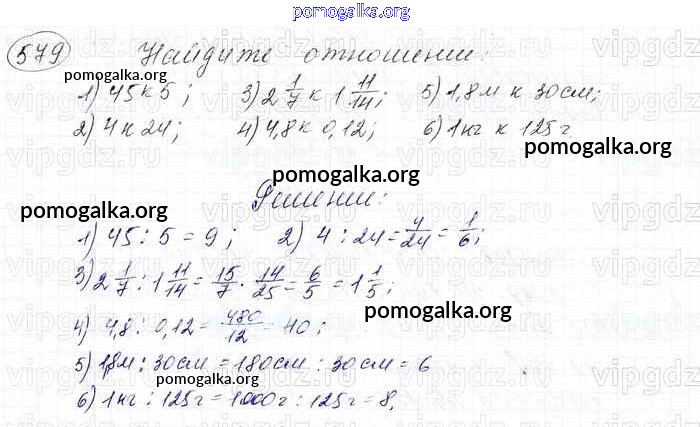 pomogalka.org
579 Найдите отношении:
pomogalka.org
1) 45 к 5; 3) 2 1/7 к 1 11/14; 5) 1,8м к 30см;
2) 4 к 24; 4) 4,8 к 0,12; 6) 1кг к 125г.
pomogalka.org
Решении:
pomogalka.org
1) 45 : 5 = 9; 2) 4 : 24 = 4/24 = 1/6;
pomogalka.org
3) 2 1/7 : 1 11/14 = 15/7 · 14/25 = 6/5 = 1 1/5;
4) 4,8 : 0,12 = 480/12 = 40;
pomogalka.org
5) 1,8м : 30см = 180см : 30см = 6
pomogalka.org
6) 1кг : 125г = 1000г : 125г = 8.